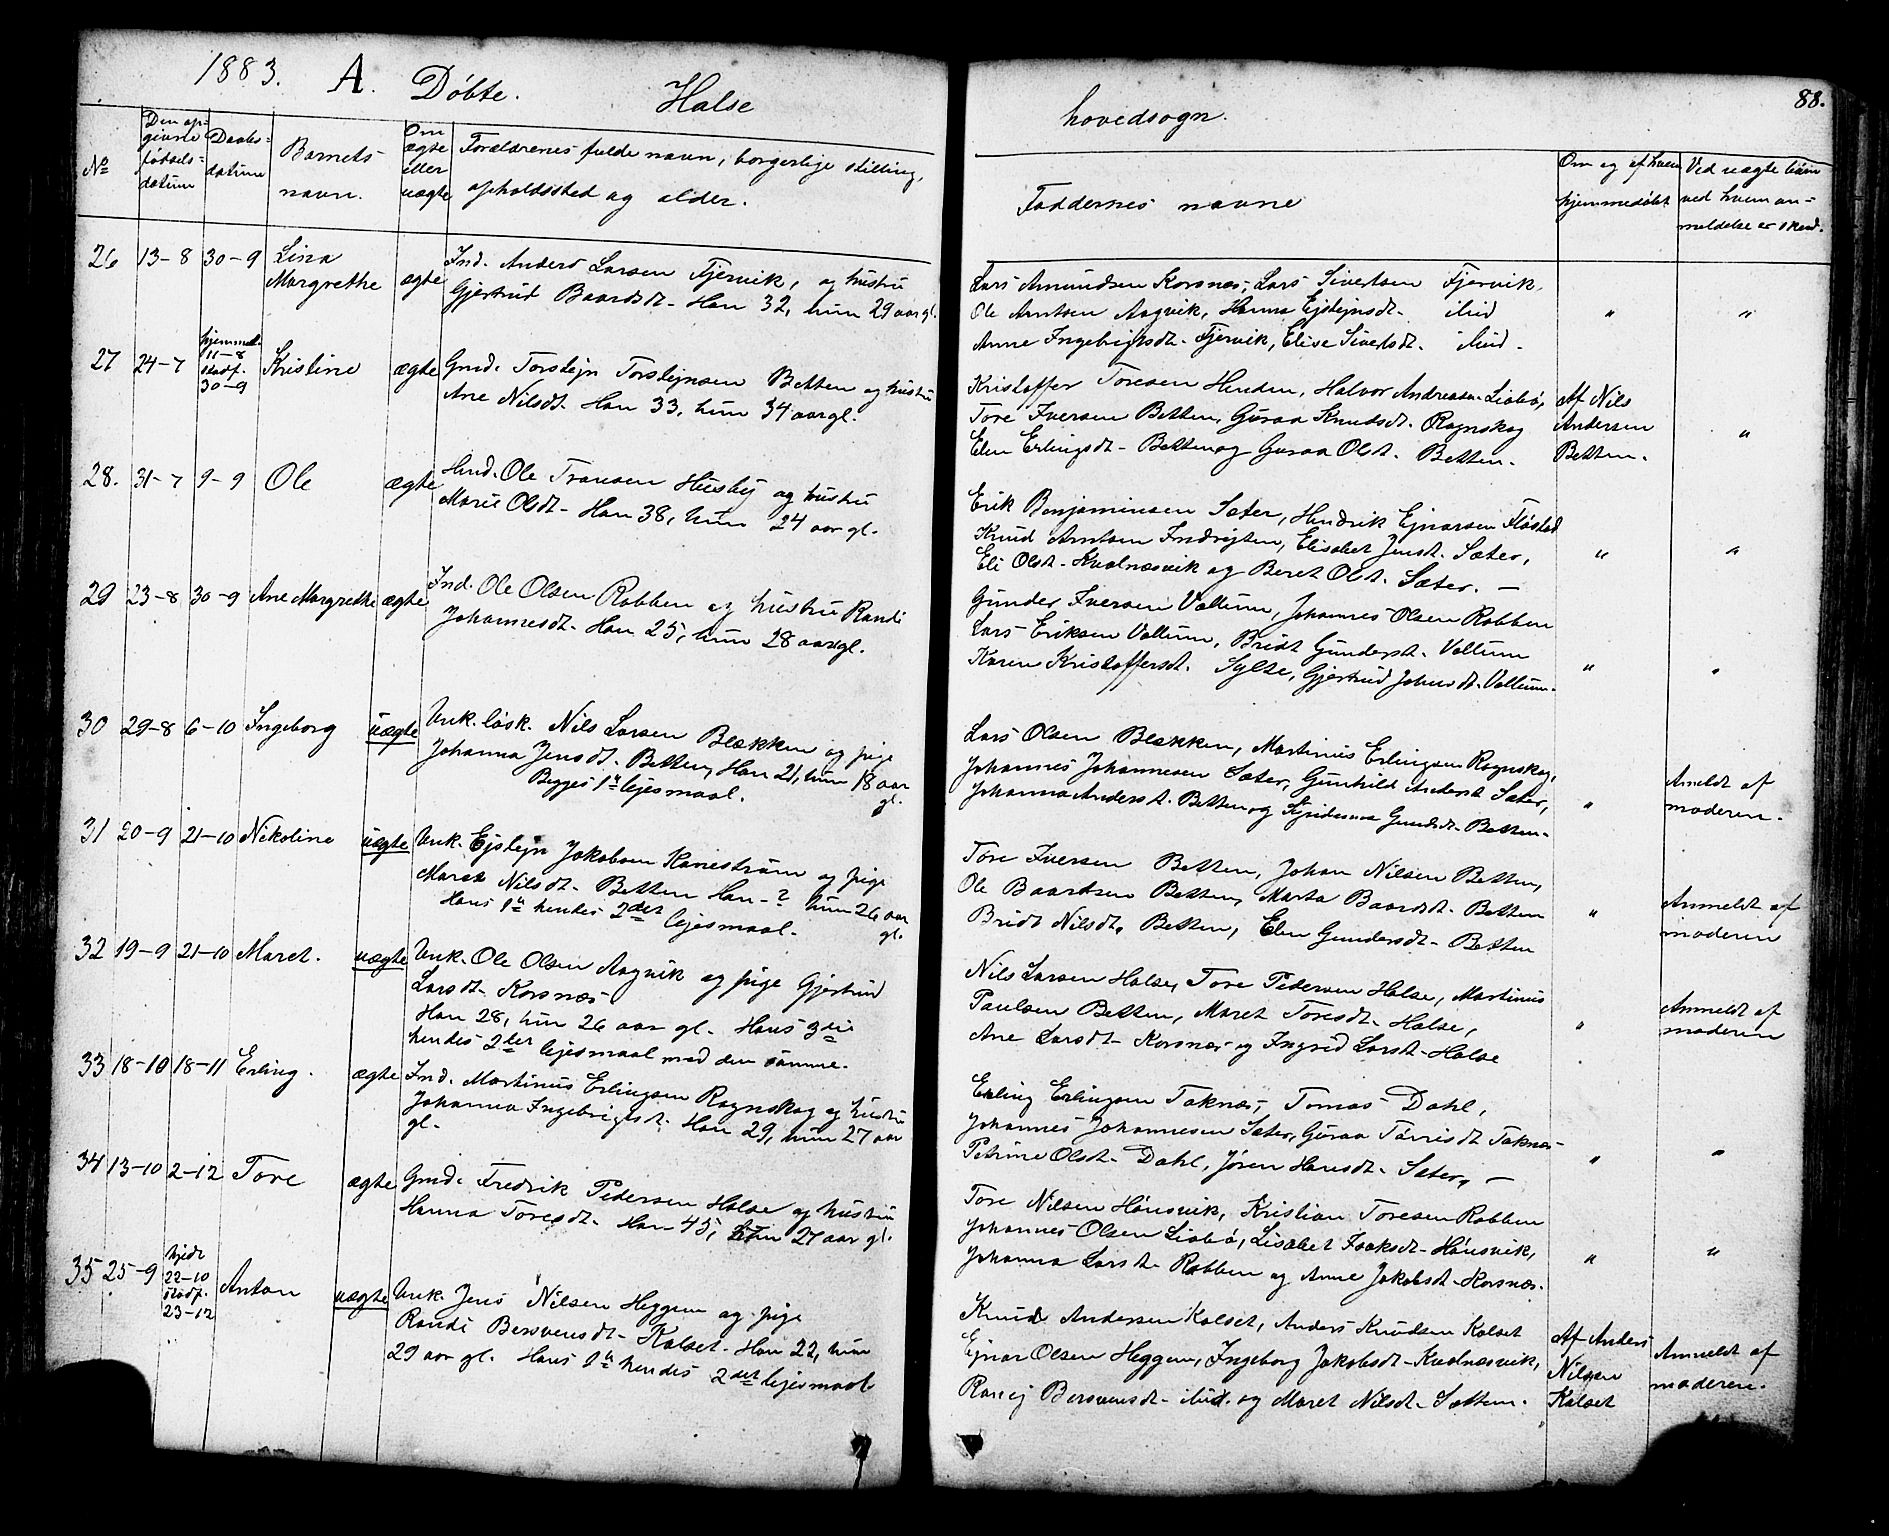 1883. A. Døbte. Halse
hovedsogn.
88.
No
Den op-
givne
fødsels-
datum
Daabs-
datum
Barnets
navn.
Om
ægte
eller
uægte
Forældrenes fulde navn, borgerlige stilling,
opholdssted og alder.
Faddernes navne
Om og af hvem
hjemmedøbt
Ved uægte børn
ved hvem an-
meldelse er skeed.
26 13-8 30-9 Lina
Margrethe ægte
Ind. Anders Larsen Fjervik, og hustru
Gjertrud Baardsdt. Han 32, hun 29 aar gl.
Lars Amundsen Korsnæs, Lars Sivertsen Fjervik,
Ole Arntsen Aagvik, Hanna Ejstejnsdt. ibid
Anne Ingebrigtsdt. Fjervik, Elise Sivertsdt. ibid.
" "
27 24-7
hjemmed.
11-8
stadf.
30-9
Kristine ægte
Gmd. Torstejn Torstejnsen Betten og hustru
Ane Nilsdt. Han 33, hun 34 aar gl.
Kristoffer Toresen Henden, Halvor Andreasen Liabø,
Tore Iversen Betten, Guraa Knudsdt. Rognskog
Elen Erlingsdt. Betten og Guraa Olsdt. Betten.
Af Nils
Andersen
Betten.
"
28. 31-7 9-9 Ole ægte
Hmd. Ole Tronsen Husby og hustru
Marit Olsdt. Han 38, hun 24 aar gl.
Erik Benjaminsen Sæter, Hendrik Ejnarsen Fløstad
Knud Arntsen Indrejten, Elisabet Jensdt. Sæter,
Eli Olsdt. Kvalnæsvik og Beret Olsdt. Sæter. —
" "
29 23-8 30-9 Ane Margrethe ægte
Ind. Ole Olsen Robben og hustru Randi
Johannesdt. Han 25, hun 28 aar gl.
Gunder Iversen Vollum, Johannes Olsen Robben
Lars Eriksen Vollum, Bridt Gundersdt. Vollum
Karen Kristoffersdt. Sylte, Gjertrud Johnsdt. Vollum.
" "
30 29-8 6-10 Ingeborg uægte
Unk. løsk. Nils Larsen Blekken og pige
Johanna Jensdt. Betten, Han 21, hun 18 aar
gl.
Begges 1ste lejermaal.
Lars Olsen Blekken, Martinus Erlingsen Rognskog,
Johannes Johannesen Sæter, Gunhild Andersdt Sæter,
Johanna Andersdt. Betten og Gundsdt. Betten.
"
Anmeldt af
moderen.
31 20-9 21-10 Nikoline uægte
Unk. Ejstejn Jakobsen Kanestrøm og pige
Marit Nilsdt. Betten Han - ? hun 26 aar
gl.
Hans 1ste hendes 2det lejermaal.
Tore Iversen Betten, Johan Nilsen Betten,
Ole Baardsen Betten, Marta Baardsdt. Betten
Bridt Nilsdt. Betten, Elen Gundersdt. Betten
"
Anmeldt af
moderen
32 19-9 21-10 Maret. uægte
Unk. Ole Olsen Aagvik og pige Gjertrud
Larsdt. Korsnæs
Han 28, hun 26 aar gl. Hans 3die
hendes 2det lejermaal med den samme.
Nils Larsen Halse, Tore Pedersen Halse, Martinus
Paulsen Betten, Maret Toresdt. Halse,
Ane Larsdt. Korsnæs og Ingrid Larsdt. Halse
"
Anmeldt af
moderen
33 18-10 18-11 Erling. ægte
Ind. Martinus Erlingsen Rognskog og hustru
Johanna Ingebrigtsdt. Han 29, hun 27 aar
gl.
Erling Erlingsen Taknæs, Tomas Dahl,
Johannes Johannesen Sæter, Guraa Torrisdt Taknæs
Petrine Olsdt. Dahl, Jøren Hansdt. Sæter. —
" "
34 13-10 2-12 Tore ægte
Gmd. Fredrik Pedersen Halse og hustru
Hanna Toresdt. Han 45, hun 27 aar gl.
Tore Nilsen Hønsvik, Kristian Toresen Robben
Johannes Olsen Liabø, Lisabet Isaksdt. Hønsvik,
Johanna Larsdt. Robben og Anne Jakobsdt. Korsnæs.
" "
35 25-9
hjdt
22-10
stadf.
23-12
Anton uægte
Unk. Jens Nilsen Heggem og pige
Randi Bersvensdt. Kalset. Han 22, hun
29 aar gl. Hans 1ste hendes 2det lejermaal
Knud Andersen Kalset, Anders Knudsen Kalset
Ejnar Olsen Heggem, Ingeborg Jakobsdt. Kvalnæsvik,
Ranej Bersvensdt. ibid. og Maret Nilsdt. Settem.
Af Anders
Nilsen
Kalset
Anmeldt af
moderen.